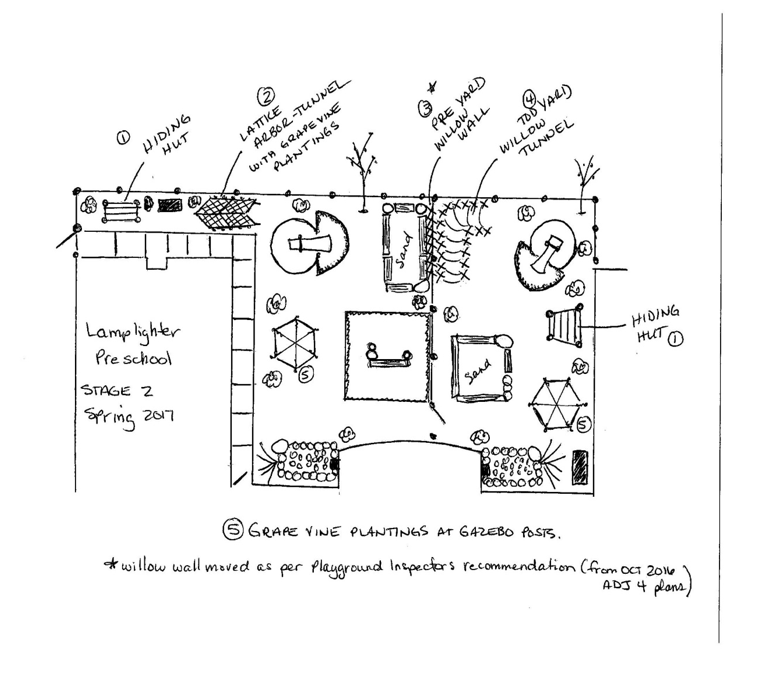 ① HIDING
HUT
②
LATTICE
ARBOR-TUNNEL
WITH GRAPEVINE
PLANTINGS
*
③ PRE YARD
WILLOW
WALL
④
TOD YARD
WILLOW
TUNNEL
Sand
HIDING
HUT ①
Lamplighter
Preschool
STAGE 2
Spring 2017
Sand
⑤
⑤
⑤ GRAPE VINE PLANTINGS AT GAZEBO POSTS.
* willow wall moved as per Playground Inspectors recommendation (from OCT 2016
ADJ 4 plans)